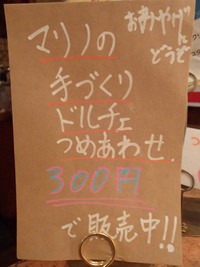 おみやげに
どうぞ
マリノの
手づくり
ドルチェ
つめあわせ.
300円
で販売中!!